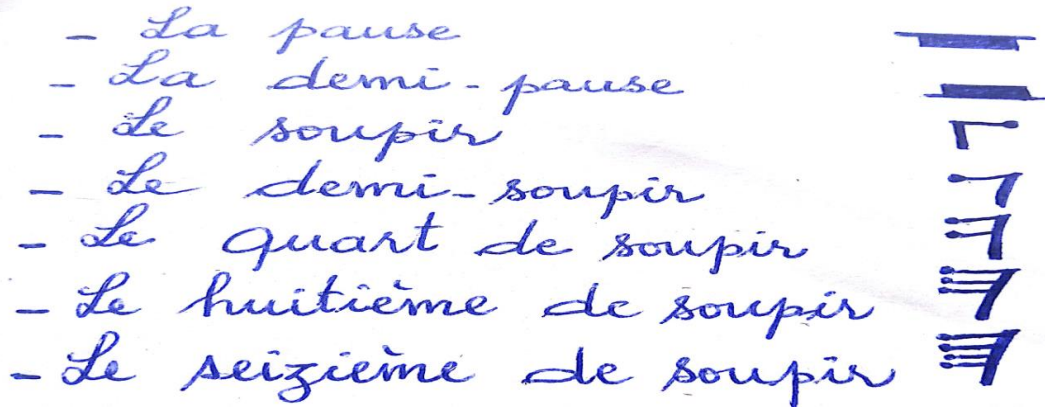 - La pause
- La demi-pause
- Le soupir
- Le demi-soupir
- Le quart de soupir
- Le huitième de soupir
- Le seizième de soupir